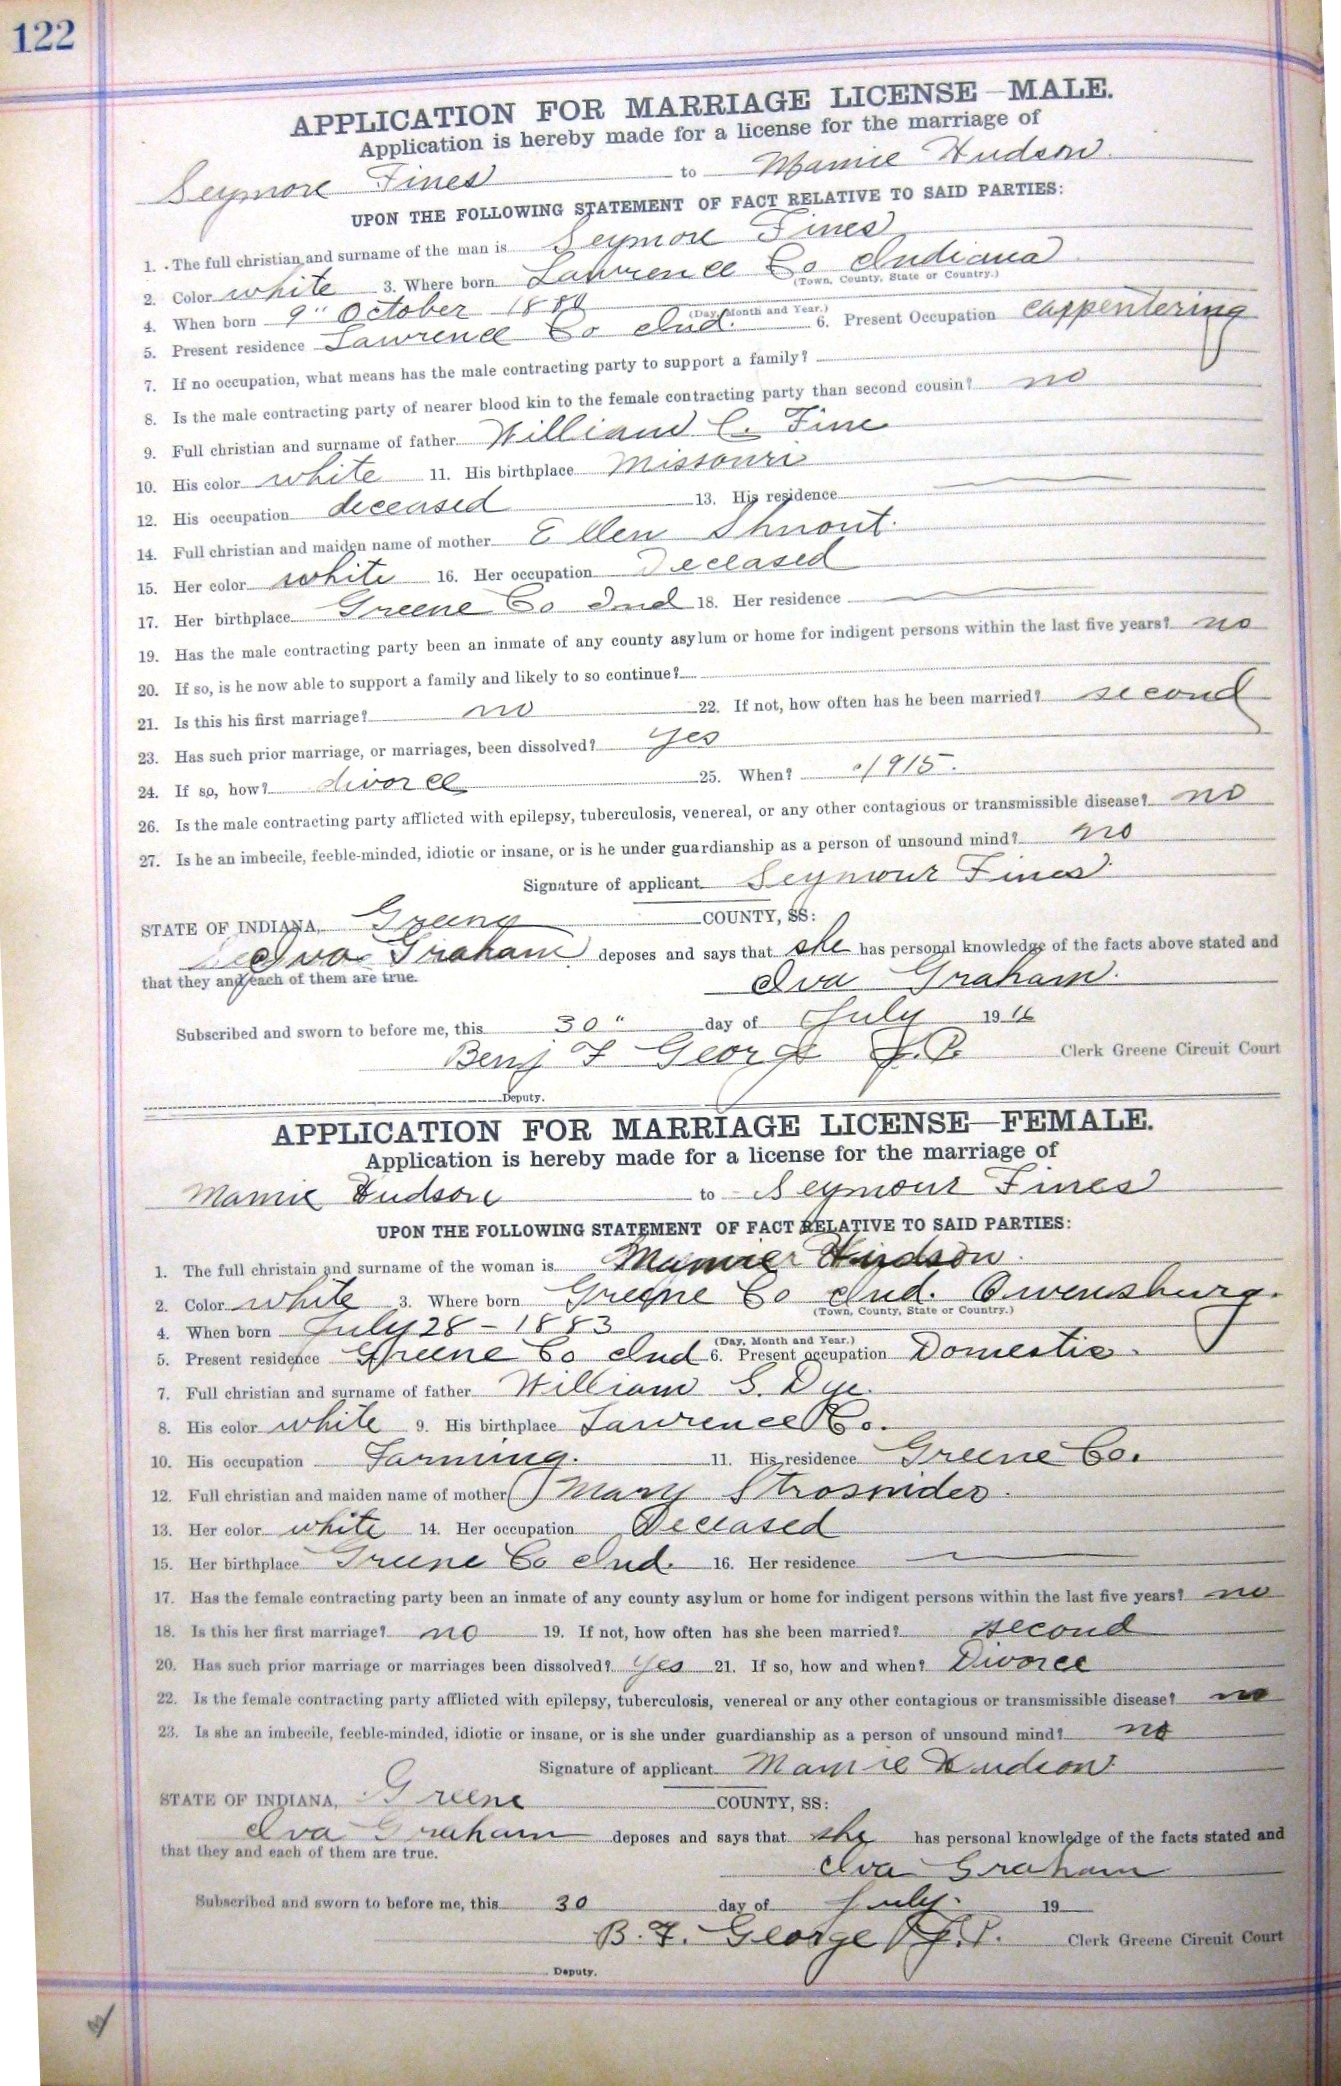 122
APPLICATION FOR MARRIAGE LICENSE—MALE.
Application is hereby made for a license for the marriage of
Seymore Fines to Mamie Hudson
UPON THE FOLLOWING STATEMENT OF FACT RELATIVE TO SAID PARTIES:
1. The full christian and surname of the man is Seymore Fines
2. Color white 3. Where born Lawrence Co Indiana
(Town, County, State or Country.)
4. When born 9" October
(Day, Month and Year.)
5. Present residence Lawrence Co Ind. 6. Present Occupation carpentering
7. If no occupation, what means has the male contracting party to support a family?
8. Is the male contracting party of nearer blood kin to the female contracting party than second cousin? no
9. Full christian and surname of father William C. Fine
10. His color white 11. His birthplace Missouri
12. His occupation deceased 13. His residence
14. Full christian and maiden name of mother Ellen
15. Her color white 16. Her occupation Deceased
17. Her birthplace Greene Co Ind 18. Her residence
19. Has the male contracting party been an inmate of any county asylum or home for indigent persons within the last five years? no
20. If so, is he now able to support a family and likely to so continue?
21. Is this his first marriage? no 22. If not, how often has he been married? second
23. Has such prior marriage, or marriages, been dissolved? yes
24. If so, how? divorce 25. When? 1915.
26. Is the male contracting party afflicted with epilepsy, tuberculosis, venereal, or any other contagious or transmissible disease? no
27. Is he an imbecile, feeble-minded, idiotic or insane, or is he under guardianship as a person of unsound mind? no
Signature of applicant Seymour Fines
STATE OF INDIANA, Greene COUNTY, SS:
Iva Graham deposes and says that she has personal knowledge of the facts above stated and
that they and each of them are true.
Iva Graham
Subscribed and sworn to before me, this 30" day of July 1916
Benj F George J.P. Clerk Greene Circuit Court
Deputy.
APPLICATION FOR MARRIAGE LICENSE—FEMALE.
Application is hereby made for a license for the marriage of
Mamie Hudson to Seymour Fines
UPON THE FOLLOWING STATEMENT OF FACT RELATIVE TO SAID PARTIES:
1. The full christain and surname of the woman is Mamie Hudson
2. Color white 3. Where born Greene Co Ind. Owensburg.
(Town, County, State or Country.)
4. When born July 28 - 1883
(Day, Month and Year.)
5. Present residence Greene Co Ind 6. Present occupation Domestic.
7. Full christian and surname of father William G. Dye.
8. His color white 9. His birthplace Lawrence Co.
10. His occupation Farming. 11. His residence Greene Co.
12. Full christian and maiden name of mother Mary Strosnider.
13. Her color white 14. Her occupation Deceased
15. Her birthplace Greene Co Ind. 16. Her residence
17. Has the female contracting party been an inmate of any county asylum or home for indigent persons within the last five years? no
18. Is this her first marriage? no 19. If not, how often has she been married? second
20. Has such prior marriage or marriages been dissolved? yes 21. If so, how and when? Divorce
22. Is the female contracting party afflicted with epilepsy, tuberculosis, venereal or any other contagious or transmissible disease? no
23. Is she an imbecile, feeble-minded, idiotic or insane, or is she under guardianship as a person of unsound mind? no
Signature of applicant Mamie Hudson
STATE OF INDIANA, Greene COUNTY, SS:
Iva Graham deposes and says that she has personal knowledge of the facts stated and
that they and each of them are true.
Iva Graham
Subscribed and sworn to before me, this 30 day of July. 19
B. F. George J.P. Clerk Greene Circuit Court
Deputy.